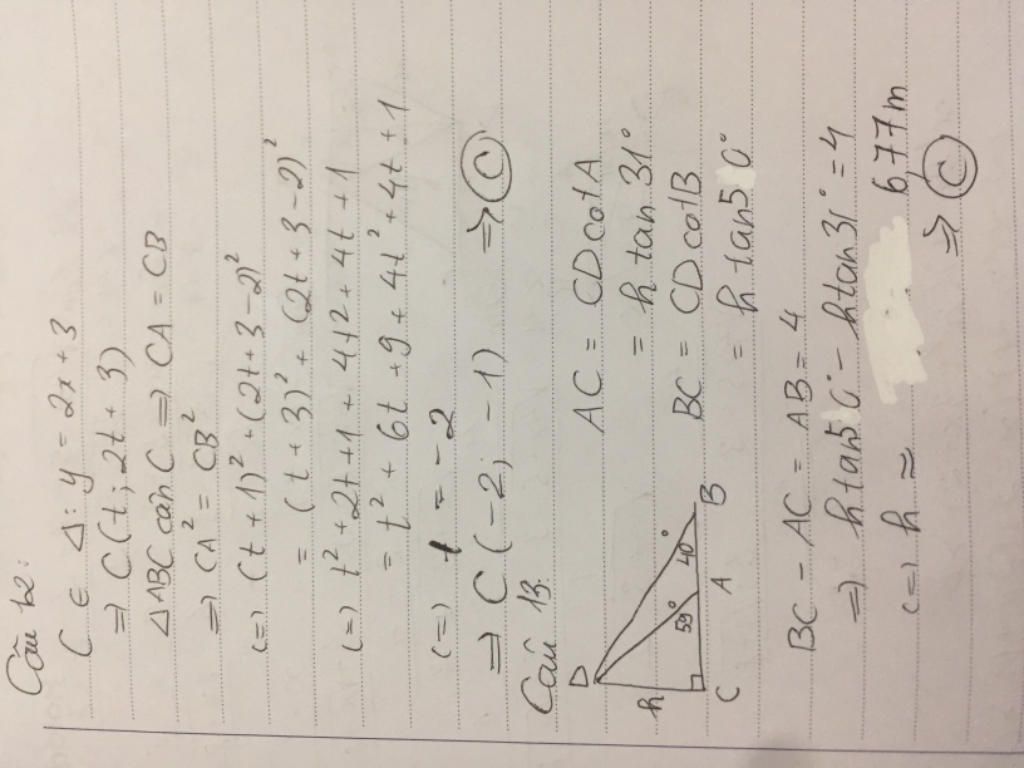 Câu 12:
C ∈ Δ: y = 2x + 3
⇒ C(t; 2t + 3)
ΔABC cân C ⇒ CA = CB
⇒ CA² = CB²
(=) (t + 1)² + (2t + 3 - 2)²
= (t + 3)² + (2t + 3 - 2)²
(=) t² + 2t + 1 + 4t² + 4t + 1
= t² + 6t + 9 + 4t² + 4t + 1
(=) t = -2
⇒ C(-2; -1) ⇒ C
Câu 13.
D
h
59°
40°
C A B
AC = CD cot A
= h tan 31°
BC = CD cot B
= h tan 50°
BC - AC = AB = 4
⇒ h tan 50° - h tan 31° = 4
(=) h ≈ 6,77 m
⇒ C